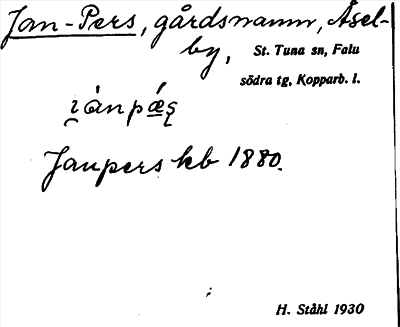 Jan-Pers, gårdsnamn, Åsel-
by, St. Tuna sn, Falu
södra tg, Kopparb. l.
i̯ànpǽş
Janpers kb 1880.
H. Ståhl 1930